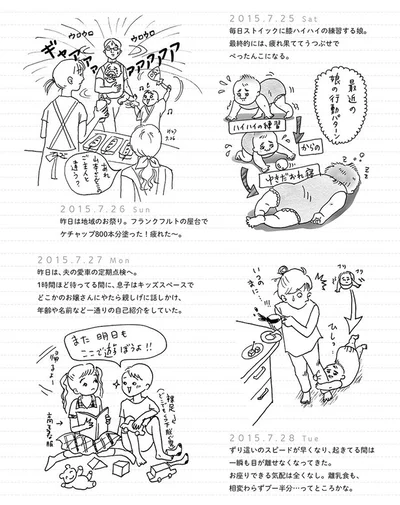 2015.7.25 Sat
毎日ストイックに膝ハイハイの練習する娘。
最終的には、疲れ果ててうつぶせで
ぺったんこになる。
最近の
娘の行動パターン
ハイハイの練習
からの
ゆきだおれ寝
ウロウロ
ウロウロ
ギャアァァ
アァアァ
2015.7.26 Sun
昨日は地域のお祭り。フランクフルトの屋台で
ケチャップ800本分塗った！疲れた〜。
2015.7.27 Mon
昨日は、夫の愛車の定期点検へ。
1時間ほど待ってる間に、息子はキッズスペースで
どこかのお嬢さんにやたら親しげに話しかけ、
年齢や名前など一通りの自己紹介をしていた。
また明日も
ここで遊ぼうよ！！
帰るよー
裸足
いつの
まに…!!
ひしっ
2015.7.28 Tue
ずり這いのスピードが早くなり、起きてる間は
一瞬も目が離せなくなってきた。
お座りできる気配は全くなし。離乳食も、
相変わらずブー半分…ってところかな。